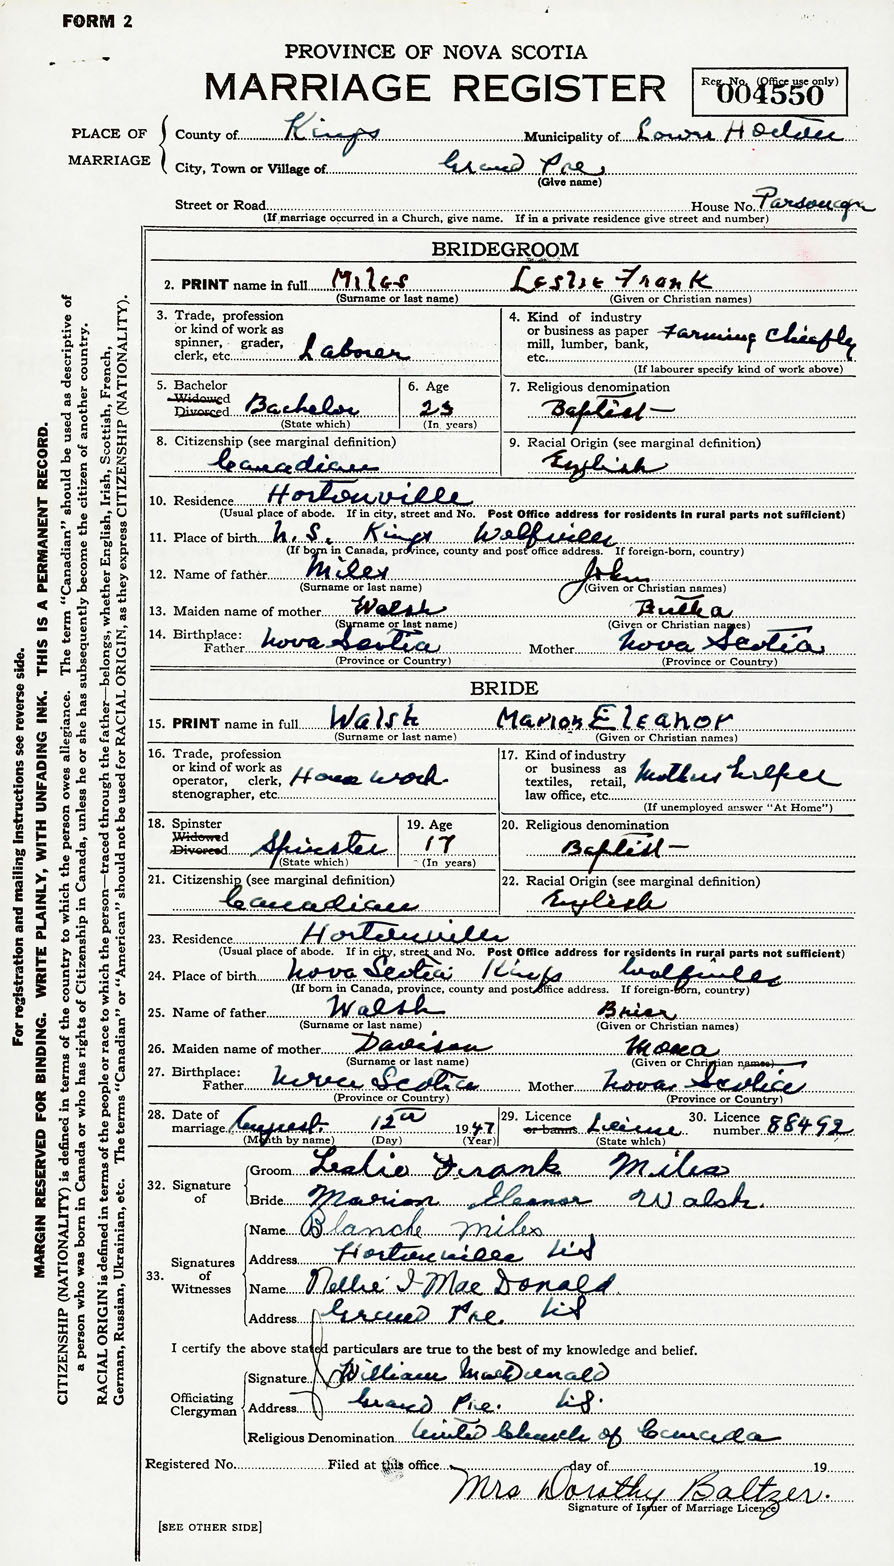 FORM 2
PROVINCE OF NOVA SCOTIA
MARRIAGE REGISTER
Reg. No. (Office use only)
004550
PLACE OF MARRIAGE
County of Kings Municipality of Lower Horton
City, Town or Village of Grand Pre
(Give name)
Street or Road House No. Parsonage
(If marriage occurred in a Church, give name. If in a private residence give street and number)
BRIDEGROOM
2. PRINT name in full Miles Leslie Frank
(Surname or last name) (Given or Christian names)
3. Trade, profession or kind of work as spinner, grader, clerk, etc. Laborer
4. Kind of industry or business as paper mill, lumber, bank, etc. Farming Chiefly
(If labourer specify kind of work above)
5. Bachelor Widowed Divorced Bachelor
(State which)
6. Age 23
(In years)
7. Religious denomination
Baptist
8. Citizenship (see marginal definition)
Canadian
9. Racial Origin (see marginal definition)
English
10. Residence Hortonville
(Usual place of abode. If in city, street and No. Post Office address for residents in rural parts not sufficient)
11. Place of birth N.S. Kings Wolfville
(If born in Canada, province, county and post office address. If foreign-born, country)
12. Name of father Miles John
(Surname or last name) (Given or Christian names)
13. Maiden name of mother Walsh
(Surname or last name) (Given or Christian names)
14. Birthplace: Father Nova Scotia Mother Nova Scotia
(Province or Country) (Province or Country)
BRIDE
15. PRINT name in full Walsh Marion Eleanor
(Surname or last name) (Given or Christian names)
16. Trade, profession or kind of work as operator, clerk, stenographer, etc. House work
17. Kind of industry or business as textiles, retail, law office, etc. Mothers helper
(If unemployed answer "At Home")
18. Spinster Widowed Divorced Spinster
(State which)
19. Age 17
(In years)
20. Religious denomination
Baptist
21. Citizenship (see marginal definition)
Canadian
22. Racial Origin (see marginal definition)
English
23. Residence Hortonville
(Usual place of abode. If in city, street and No. Post Office address for residents in rural parts not sufficient)
24. Place of birth Nova Scotia Kings Wolfville
(If born in Canada, province, county and post office address. If foreign-born, country)
25. Name of father Walsh
(Surname or last name) (Given or Christian names)
26. Maiden name of mother Davison Mona
(Surname or last name) (Given or Christian names)
27. Birthplace: Father Nova Scotia Mother Nova Scotia
(Province or Country) (Province or Country)
28. Date of marriage August 12th 1947
(Month by name) (Day) (Year)
29. Licence or banns License
(State which)
30. Licence number 88492
32. Signature of
Groom Leslie Frank Miles
Bride Marion Eleanor Walsh.
33. Signatures of Witnesses
Name Blanche Miles
Address Hortonville NS
Name Nellie I MacDonald
Address Grand Pre. NS
I certify the above stated particulars are true to the best of my knowledge and belief.
Officiating Clergyman
Signature William MacDonald
Address Grand Pre. N.S.
Religious Denomination United Church of Canada
Registered No. Filed at this office day of 19
Mrs Dorothy Baltzer.
Signature of Issuer of Marriage Licence
[SEE OTHER SIDE]
For registration and mailing instructions see reverse side.
MARGIN RESERVED FOR BINDING. WRITE PLAINLY, WITH UNFADING INK. THIS IS A PERMANENT RECORD.
CITIZENSHIP (NATIONALITY) is defined in terms of the country to which the person owes allegiance. The term "Canadian" should be used as descriptive of
a person who was born in Canada or who has rights of Citizenship in Canada, unless he or she has subsequently become the citizen of another country.
RACIAL ORIGIN is defined in terms of the people or race to which the person—traced through the father—belongs, whether English, Irish, Scottish, French,
German, Russian, Ukrainian, etc. The terms "Canadian" or "American" should not be used for RACIAL ORIGIN, as they express CITIZENSHIP (NATIONALITY).